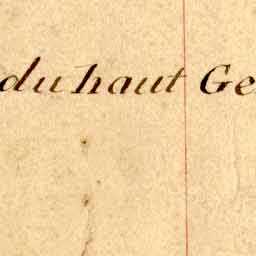 du haut Ge